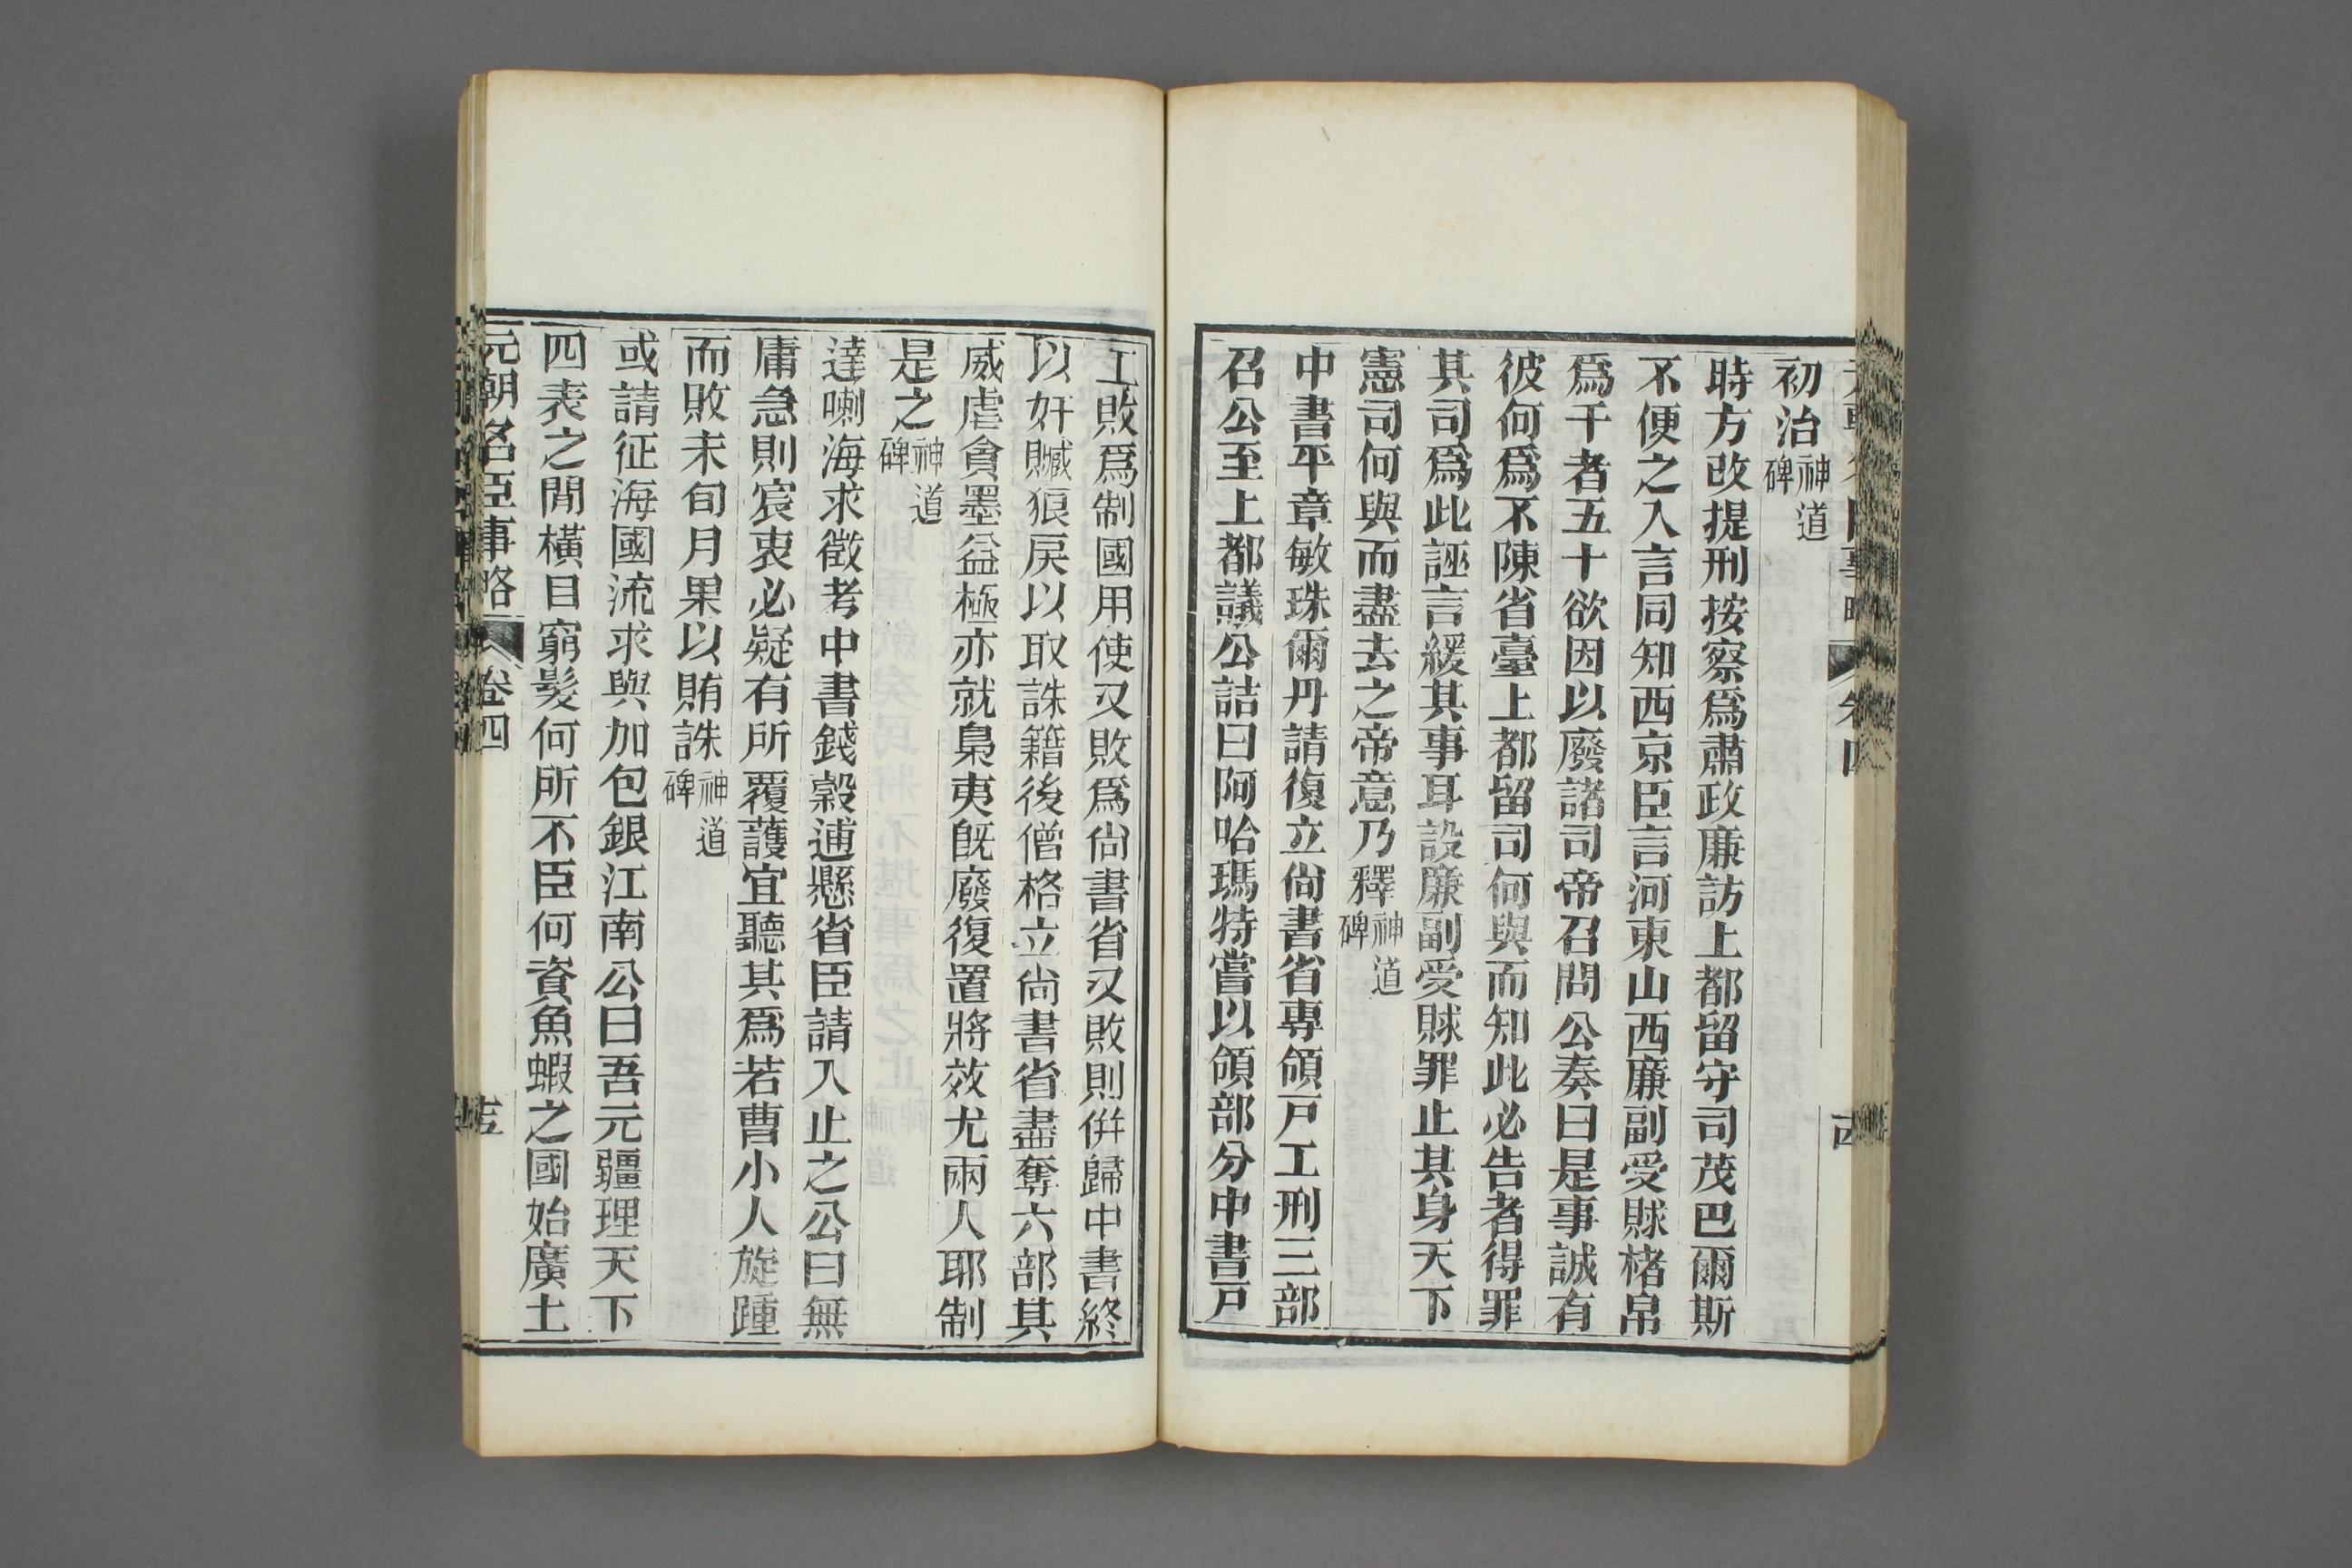 初治神道碑
時方改提刑按察爲肅政廉訪上都留守司茂巴爾斯
不便之入言同知西京臣言河東山西廉副受賕楮帛
爲千者五十欲因以廢諸司帝召問公奏曰是事誠有
彼何爲不陳省臺上都留司何與而知此必告者得罪
其司爲此誣言緩其事耳設廉副受賕罪止其身天下
憲司何與而盡去之帝意乃釋神道碑
中書平章敏珠爾丹請復立尙書省專領戸工刑三部
召公至上都議公詰曰阿哈瑪特嘗以領部分中書戸
工敗爲制國用使又敗爲尙書省又敗則倂歸中書終
以奸贓狼戻以取誅籍後僧格立尙書省盡奪六部其
威虐貪墨益極亦就梟夷旣廢復置將效尤兩人耶制
是之神道碑
達喇海求徵考中書錢穀逋懸省臣請入止之公曰無
庸急則宸衷必疑有所覆護宜聽其爲若曹小人旋踵
而敗未旬月果以賄誅神道碑
或請征海國流求與加包銀江南公曰吾元疆理天下
四表之閒橫目窮髮何所不臣何資魚蝦之國始廣土
元朝名臣事略 卷四